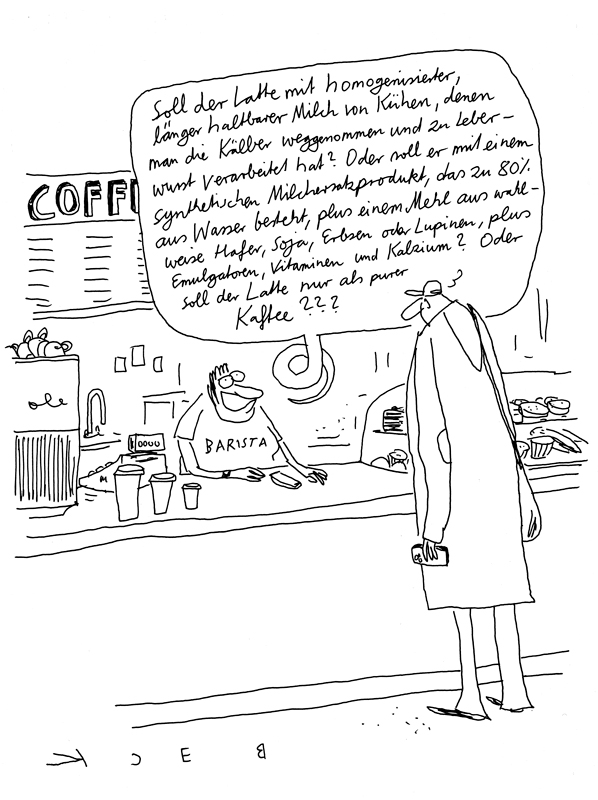 Soll der Latte mit homogenisierter,
länger haltbarer Milch von Kühen, denen
man die Kälber weggenommen und zu Leber-
wurst verarbeitet hat? Oder soll er mit einem
synthetischen Milchersatzprodukt, das zu 80%
aus Wasser besteht, plus einem Mehl aus wahl-
weise Hafer, Soja, Erbsen oder Lupinen, plus
Emulgatoren, Vitaminen und Kalzium? Oder
soll der Latte nur als purer
Kaffee ???
COFF
ole
BARISTA
BECK